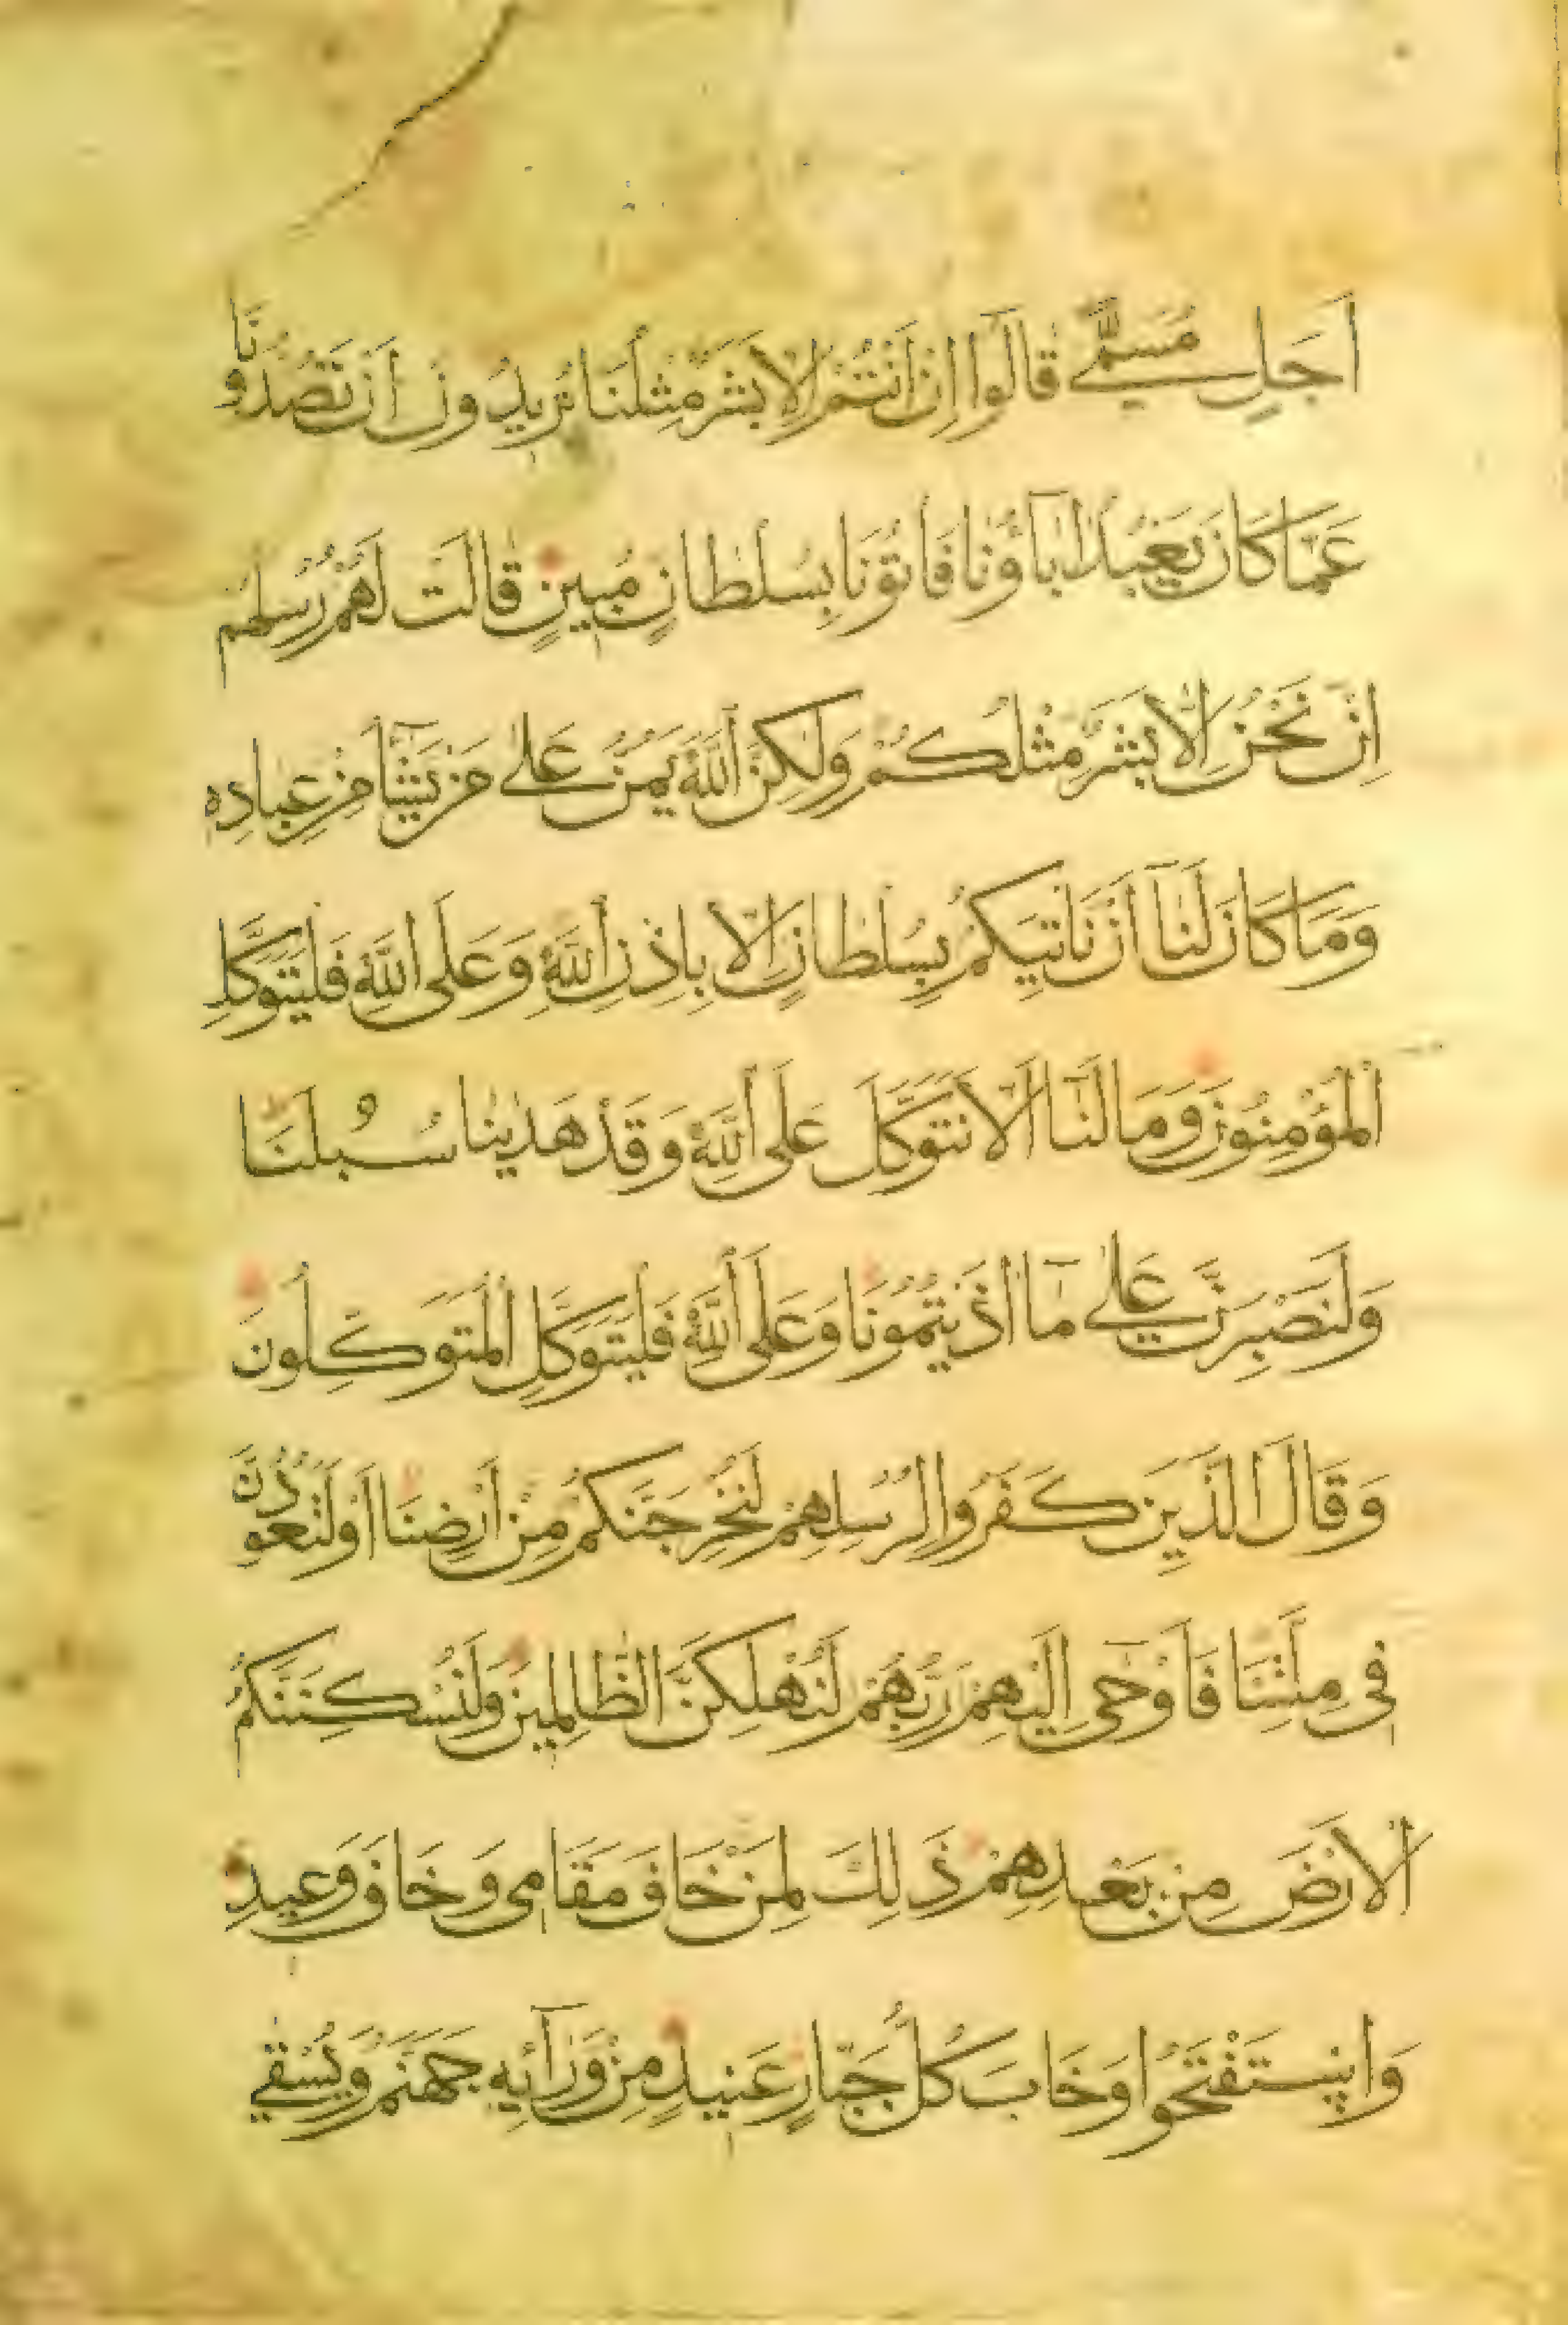 اَجَلٍ مُسَمًّى قَالُوا اِنْ اَنْتُمْ اِلَّا بَشَرٌ مِثْلُنَا تُرِيدُونَ اَنْ تَصُدُّونَا
عَمَّا كَانَ يَعْبُدُ اٰبَاؤُنَا فَاْتُونَا بِسُلْطَانٍ مُبِينٍ قَالَتْ لَهُمْ رُسُلُهُمْ
اِنْ نَحْنُ اِلَّا بَشَرٌ مِثْلُكُمْ وَلٰكِنَّ اللّٰهَ يَمُنُّ عَلٰى مَنْ يَشَآءُ مِنْ عِبَادِهِ
وَمَا كَانَ لَنَآ اَنْ نَاْتِيَكُمْ بِسُلْطَانٍ اِلَّا بِاِذْنِ اللّٰهِ وَعَلَى اللّٰهِ فَلْيَتَوَكَّلِ
الْمُؤْمِنُونَ وَمَا لَنَآ اَلَّا نَتَوَكَّلَ عَلَى اللّٰهِ وَقَدْ هَدٰينَا سُبُلَنَا
وَلَنَصْبِرَنَّ عَلٰى مَآ اٰذَيْتُمُونَا وَعَلَى اللّٰهِ فَلْيَتَوَكَّلِ الْمُتَوَكِّلُونَ
وَقَالَ الَّذِينَ كَفَرُوا لِرُسُلِهِمْ لَنُخْرِجَنَّكُمْ مِنْ اَرْضِنَا اَوْ لَتَعُودُنَّ
فِى مِلَّتِنَا فَاَوْحٰٓى اِلَيْهِمْ رَبُّهُمْ لَنُهْلِكَنَّ الظَّالِمِينَ وَلَنُسْكِنَنَّكُمُ
الْاَرْضَ مِنْ بَعْدِهِمْ ذٰلِكَ لِمَنْ خَافَ مَقَامِى وَخَافَ وَعِيدِ
وَاسْتَفْتَحُوا وَخَابَ كُلُّ جَبَّارٍ عَنِيدٍ مِنْ وَرَآئِهِ جَهَنَّمُ وَيُسْقٰى